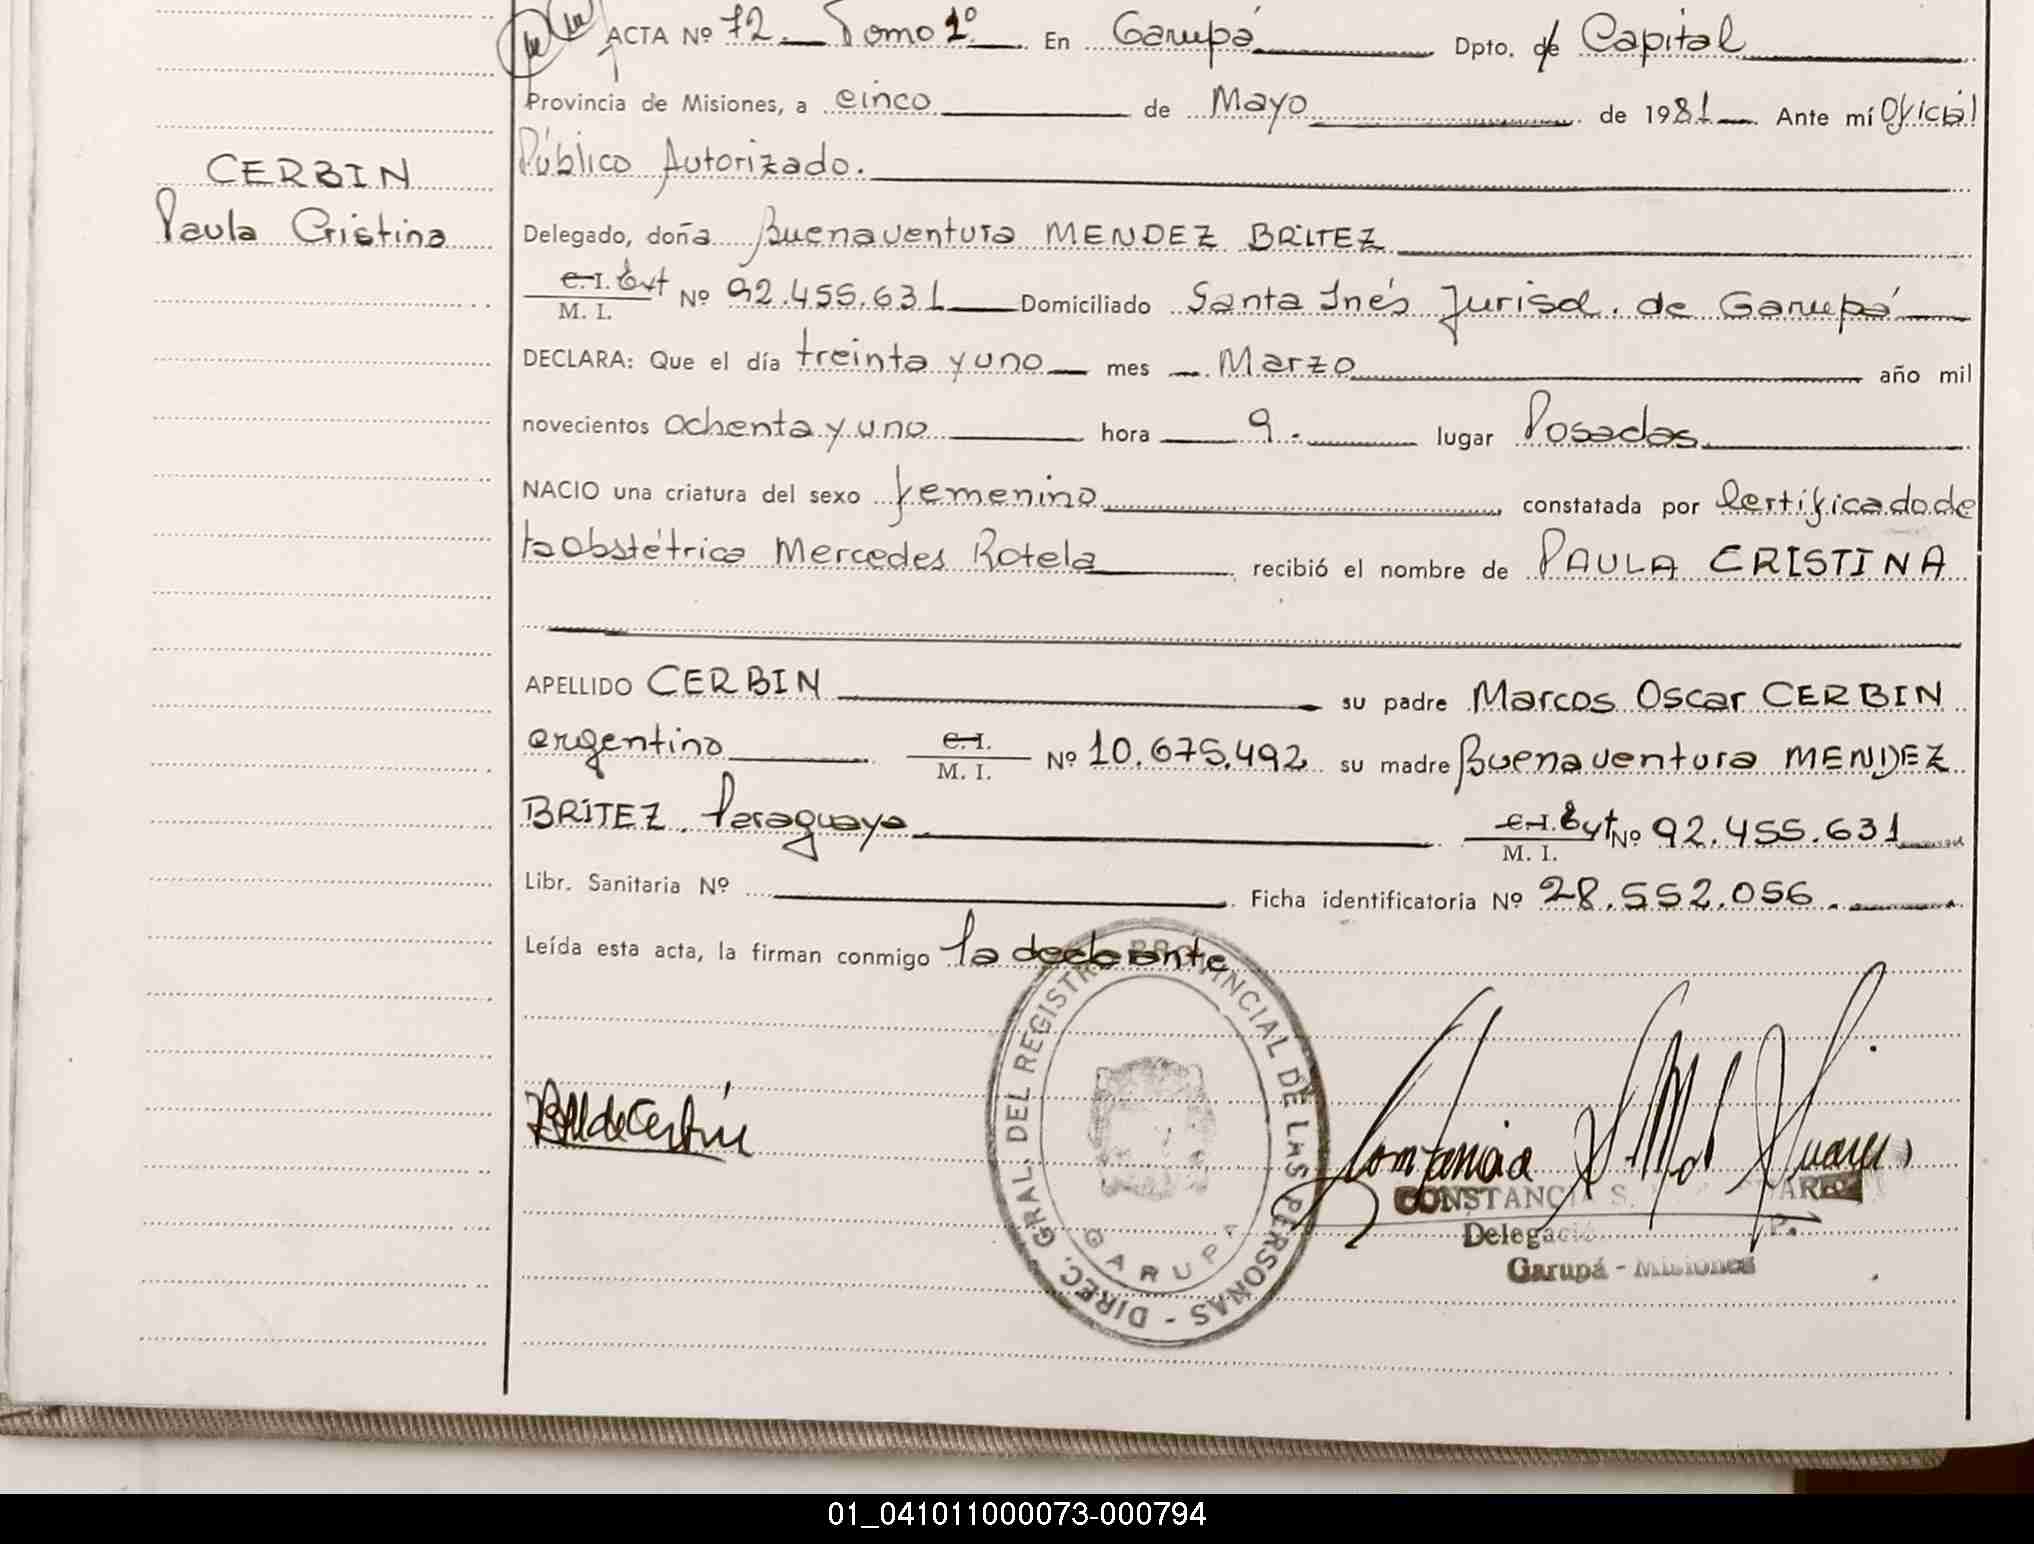 ACTA Nº 72. Tomo 1º En Garupá Dpto. de Capital
Provincia de Misiones, a cinco de Mayo de 1981 Ante mí Oficial
Público Autorizado.
CERBIN
Paula Cristina
Delegado, doña Buenaventura MENDEZ BRITEZ
C. I. Ext Nº 92.455.631 Domiciliado Santa Inés Jurisd. de Garupá
M. I.
DECLARA: Que el día treinta y uno mes Marzo año mil
novecientos ochenta y uno hora 9. lugar Posadas
NACIO una criatura del sexo femenino constatada por Certificado de
la obstétrica Mercedes Rotela recibió el nombre de PAULA CRISTINA
APELLIDO CERBIN su padre Marcos Oscar CERBIN
argentino C. I. Nº 10.675.492 su madre Buenaventura MENDEZ
M. I.
BRITEZ. Paraguaya C. I. Ext Nº 92.455.631
M. I.
Libr. Sanitaria Nº Ficha identificatoria Nº 28.552.056.
Leída esta acta, la firman conmigo la declarante
DIREC. GRAL. DEL REGISTRO PROVINCIAL DE LAS PERSONAS -
GARUPA
de Cerbin
Constancia S. Suarez
CONSTANCIA S.
Garupá - Misiones
01_041011000073-000794